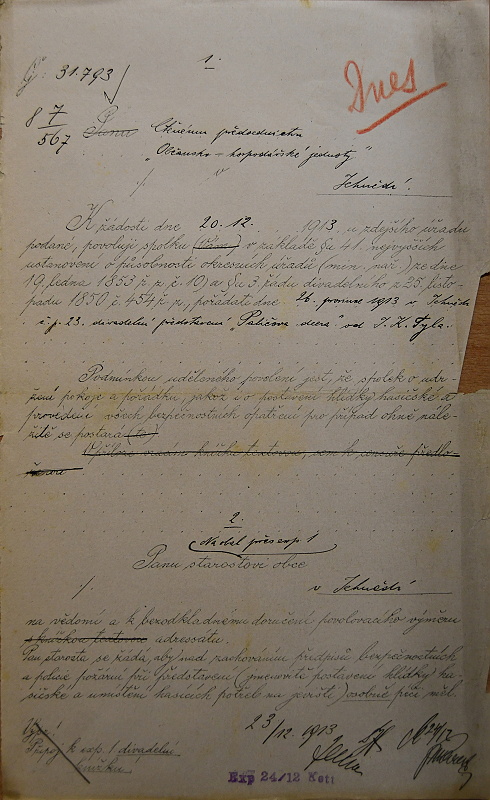 1.
Dnes
Čj. 31.793
8 7/567
Panu Ctěnému předsednictvu
„Občansko-hospodářské jednoty"
v
Jehnědí.
K žádosti dne 20.12. 1913, u zdejšího úřadu
podané, povoluji spolku (Vám) v základě §u 41. nejvyšších
ustanovení o působnosti okresních úřadů (min. nař.) ze dne
19. ledna 1853 ř. z. č. 10) a §u 3. řádu divadelního z 25. listo-
padu 1850 č. 454 ř. z., pořádati dne 26. prosince 1913 v Jehnědí
č. p. 23. divadelní představení „Paličova dcera" od J. K. Tyla.
Podmínkou uděleného povolení jest, že spolek o udr-
žení pokoje a pořádku, jakož i o postavení hlídky hasičské a
provedení všech bezpečnostních opatření pro případ ohně nále-
žitě se postará (te).
2.
Na dál. přes exp. 1
Panu starostovi obce
v Jehnědí
na vědomí a k bezodkladnému doručení povolovacího výměru
s knížkou textovou adressátu.
Pan starosta se žádá, aby nad zachováním předpisů bezpečnostních
a policie požární při představení (jmenovitě postavení hlídky ha-
sičské a umístění hasicích potřeb na jevišti) osobně péči měl.
23/12. 1913
Připoj k exp. 1 divadelní
knížku.
Exp 24/12 Kott